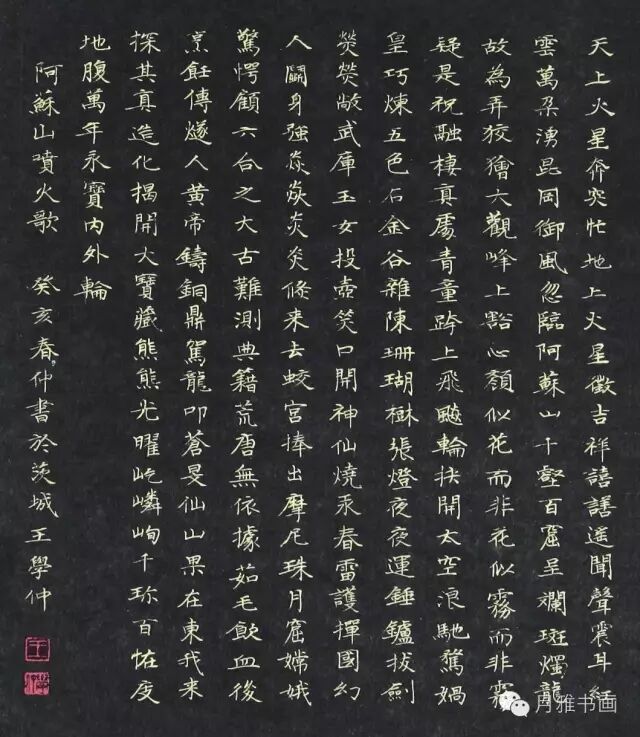 天上火星奔突忙地上火星徵吉祥譆譆遥聞聲震耳紅
雲萬朵湧昆岡御風忽臨阿蘇山千壑百窟呈斕斑燭龍
故為弄狡獪大觀峰上豁心顏似花而非花似霧而非霧
疑是祝融棲真處青童跨上飛飈輪抉開太空浪馳騖媧
皇巧煉五色石金谷雜陳珊瑚樹張燈夜夜運錘鑪拔劍
熒熒敞武庫玉女投壺笑口開神仙燒汞春雷護揮國幻
人鬭身強焱焱炎炎倏来去蛟宮捧出摩尼珠月窟嫦娥
驚愕顧六合之大古難測典籍荒唐無依據茹毛飲血後
烹飪傳燧人黄帝鑄銅鼎駕龍叩蒼旻仙山果在東我来
探其真造化揭開大寶藏熊熊光曜屹嶙峋千珍百怪度
地腹萬年永寶内外輪
阿蘇山噴火歌 癸亥春仲書於茨城王學仲
月雅书画